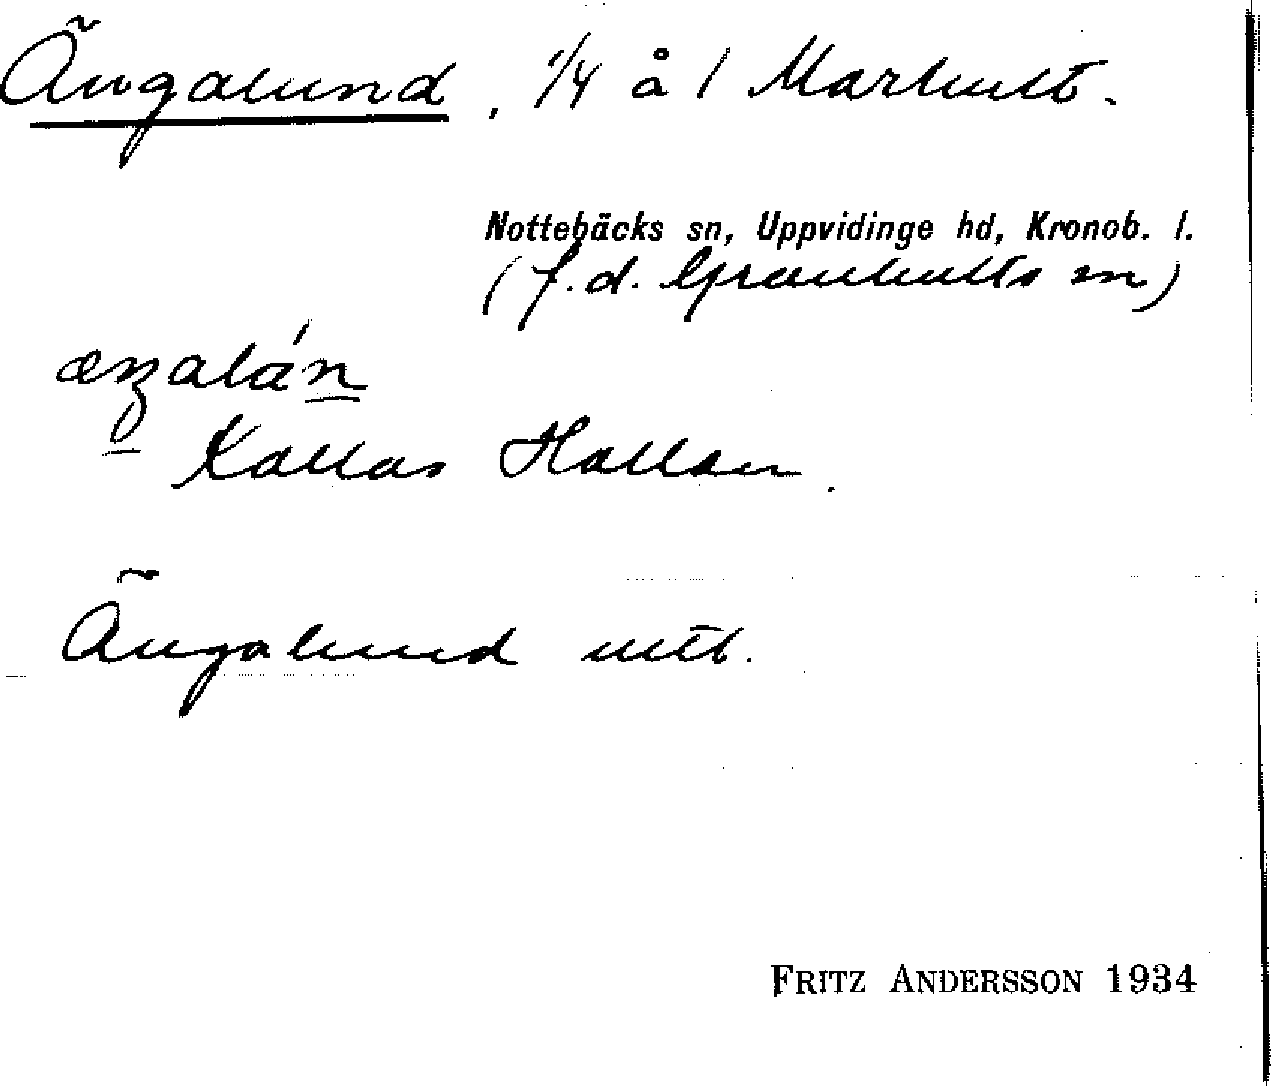 Ängalund, 1/4 å 1 Marhult.
Nottebäcks sn, Uppvidinge hd, Kronob. l.
(f.d. Granhults sn)
Kallas Hallan.
Ängalund mtl.
FRITZ ANDERSSON 1934